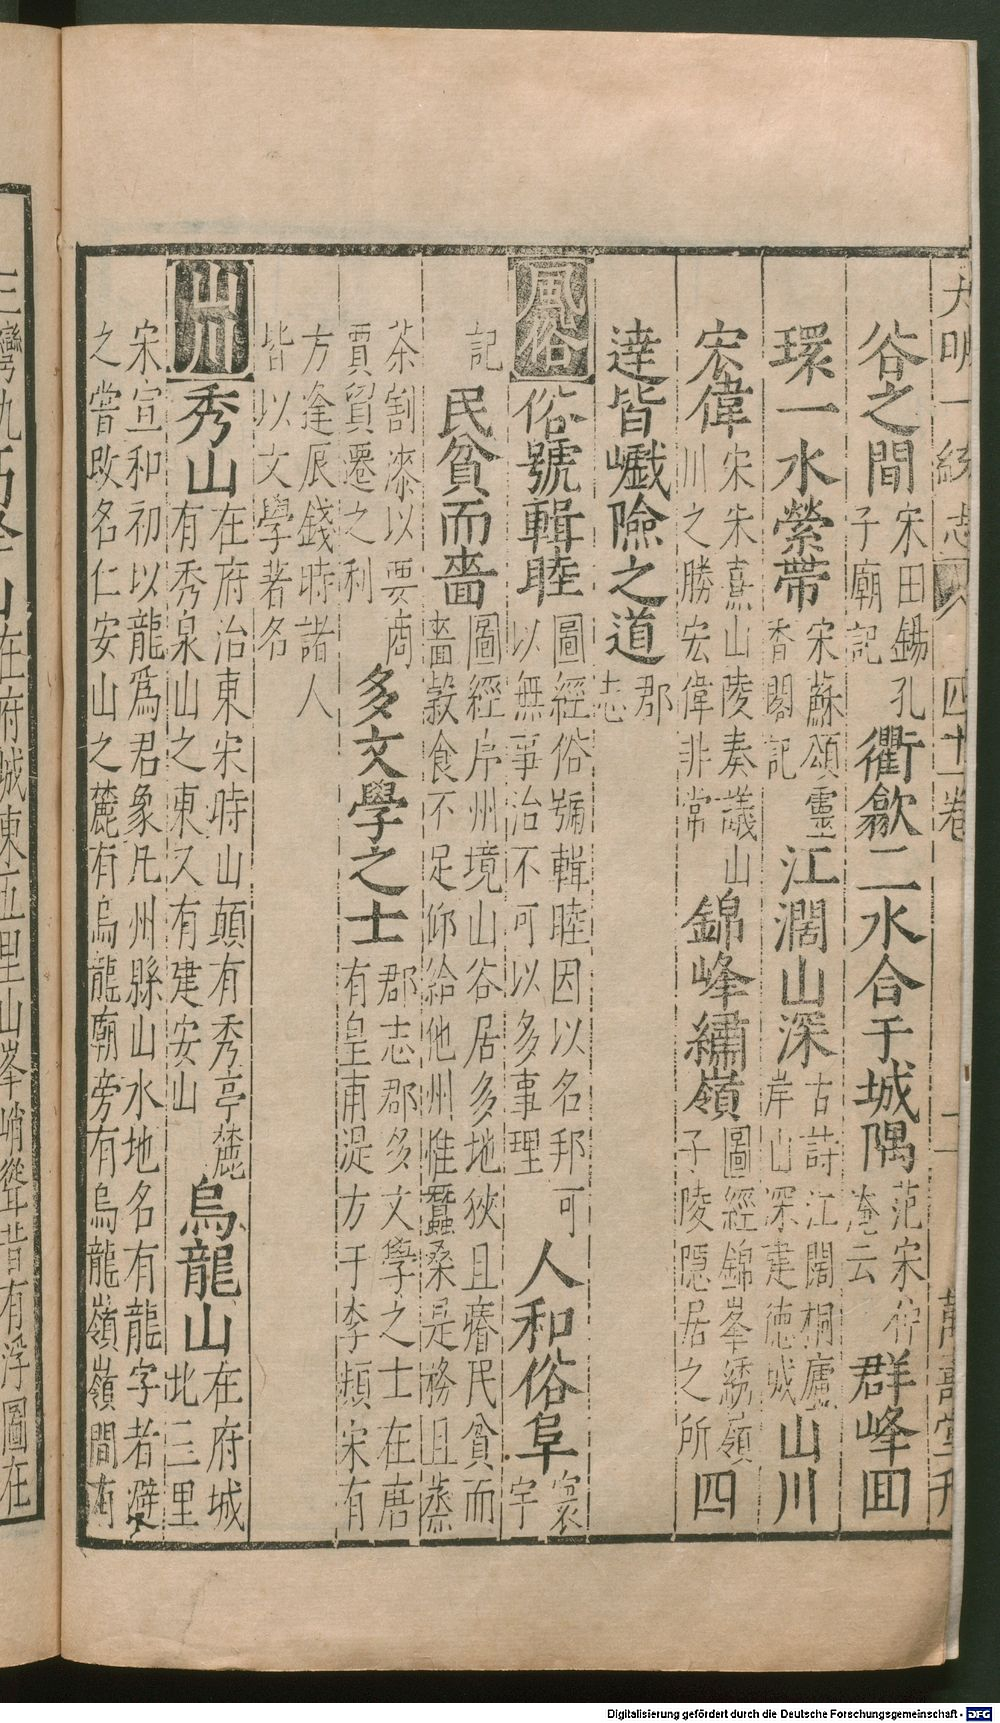 大明一統志 四十一卷 二 萬壽堂刊
谷之間 宋田錫孔子廟記 衢歙二水合于城隅 范宋 淹云 群峰囬
環一水縈帶 宋蘇頌靈香閣記 江濶山深 古詩江闊桐廬岸山深建德城 山川
宏偉 宋朱熹山陵奏議山川之勝宏偉非常 錦峰繡嶺 圖經錦峯綉嶺子陵隱居之所 四
達皆巇險之道 郡志
風俗 俗號輯睦 圖經俗號輯睦因以名邦可以無事治不可以多事理 人和俗阜 寰宇
記 民貧而嗇 圖經戶州境山谷居多地狹且瘠民貧而嗇穀食不足仰給他州惟蠶桑是務且蒸
茶割漆以要商賈貿遷之利 多文學之士 郡志郡多文學之士在唐有皇甫湜方干李頻宋有
方逢辰錢時諸人皆以文學著名
山川 秀山 在府治東宋時山顛有秀亭麓有秀泉山之東又有建安山 烏龍山 在府城北三里
宋宣和初以龍爲君象凡州縣山水地名有龍字者避之嘗改名仁安山之麓有烏龍廟旁有烏龍嶺嶺間有
在府城東五里山峯峭聳昔有浮圖在
Digitalisierung gefördert durch die Deutsche Forschungsgemeinschaft - DFG